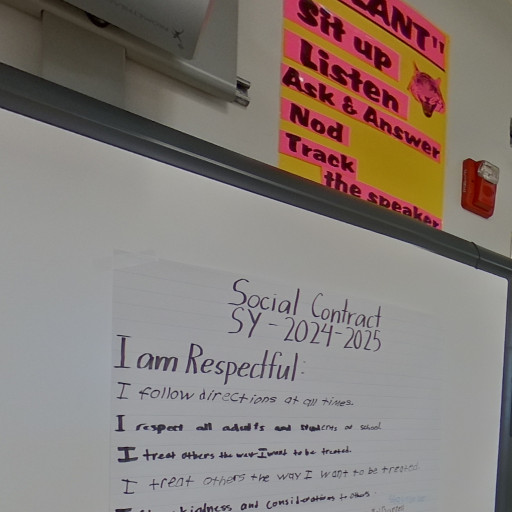 LANT"
Sit up
Listen
Ask & Answer
Nod
Track
the speaker
Social Contract
SY - 2024-2025
I am Respectful:
I follow directions at all times.
I respect all adults and students at school
I treat others the way I want to be treated.
I treat others the way I want to be treated
kindness and considerations to others.